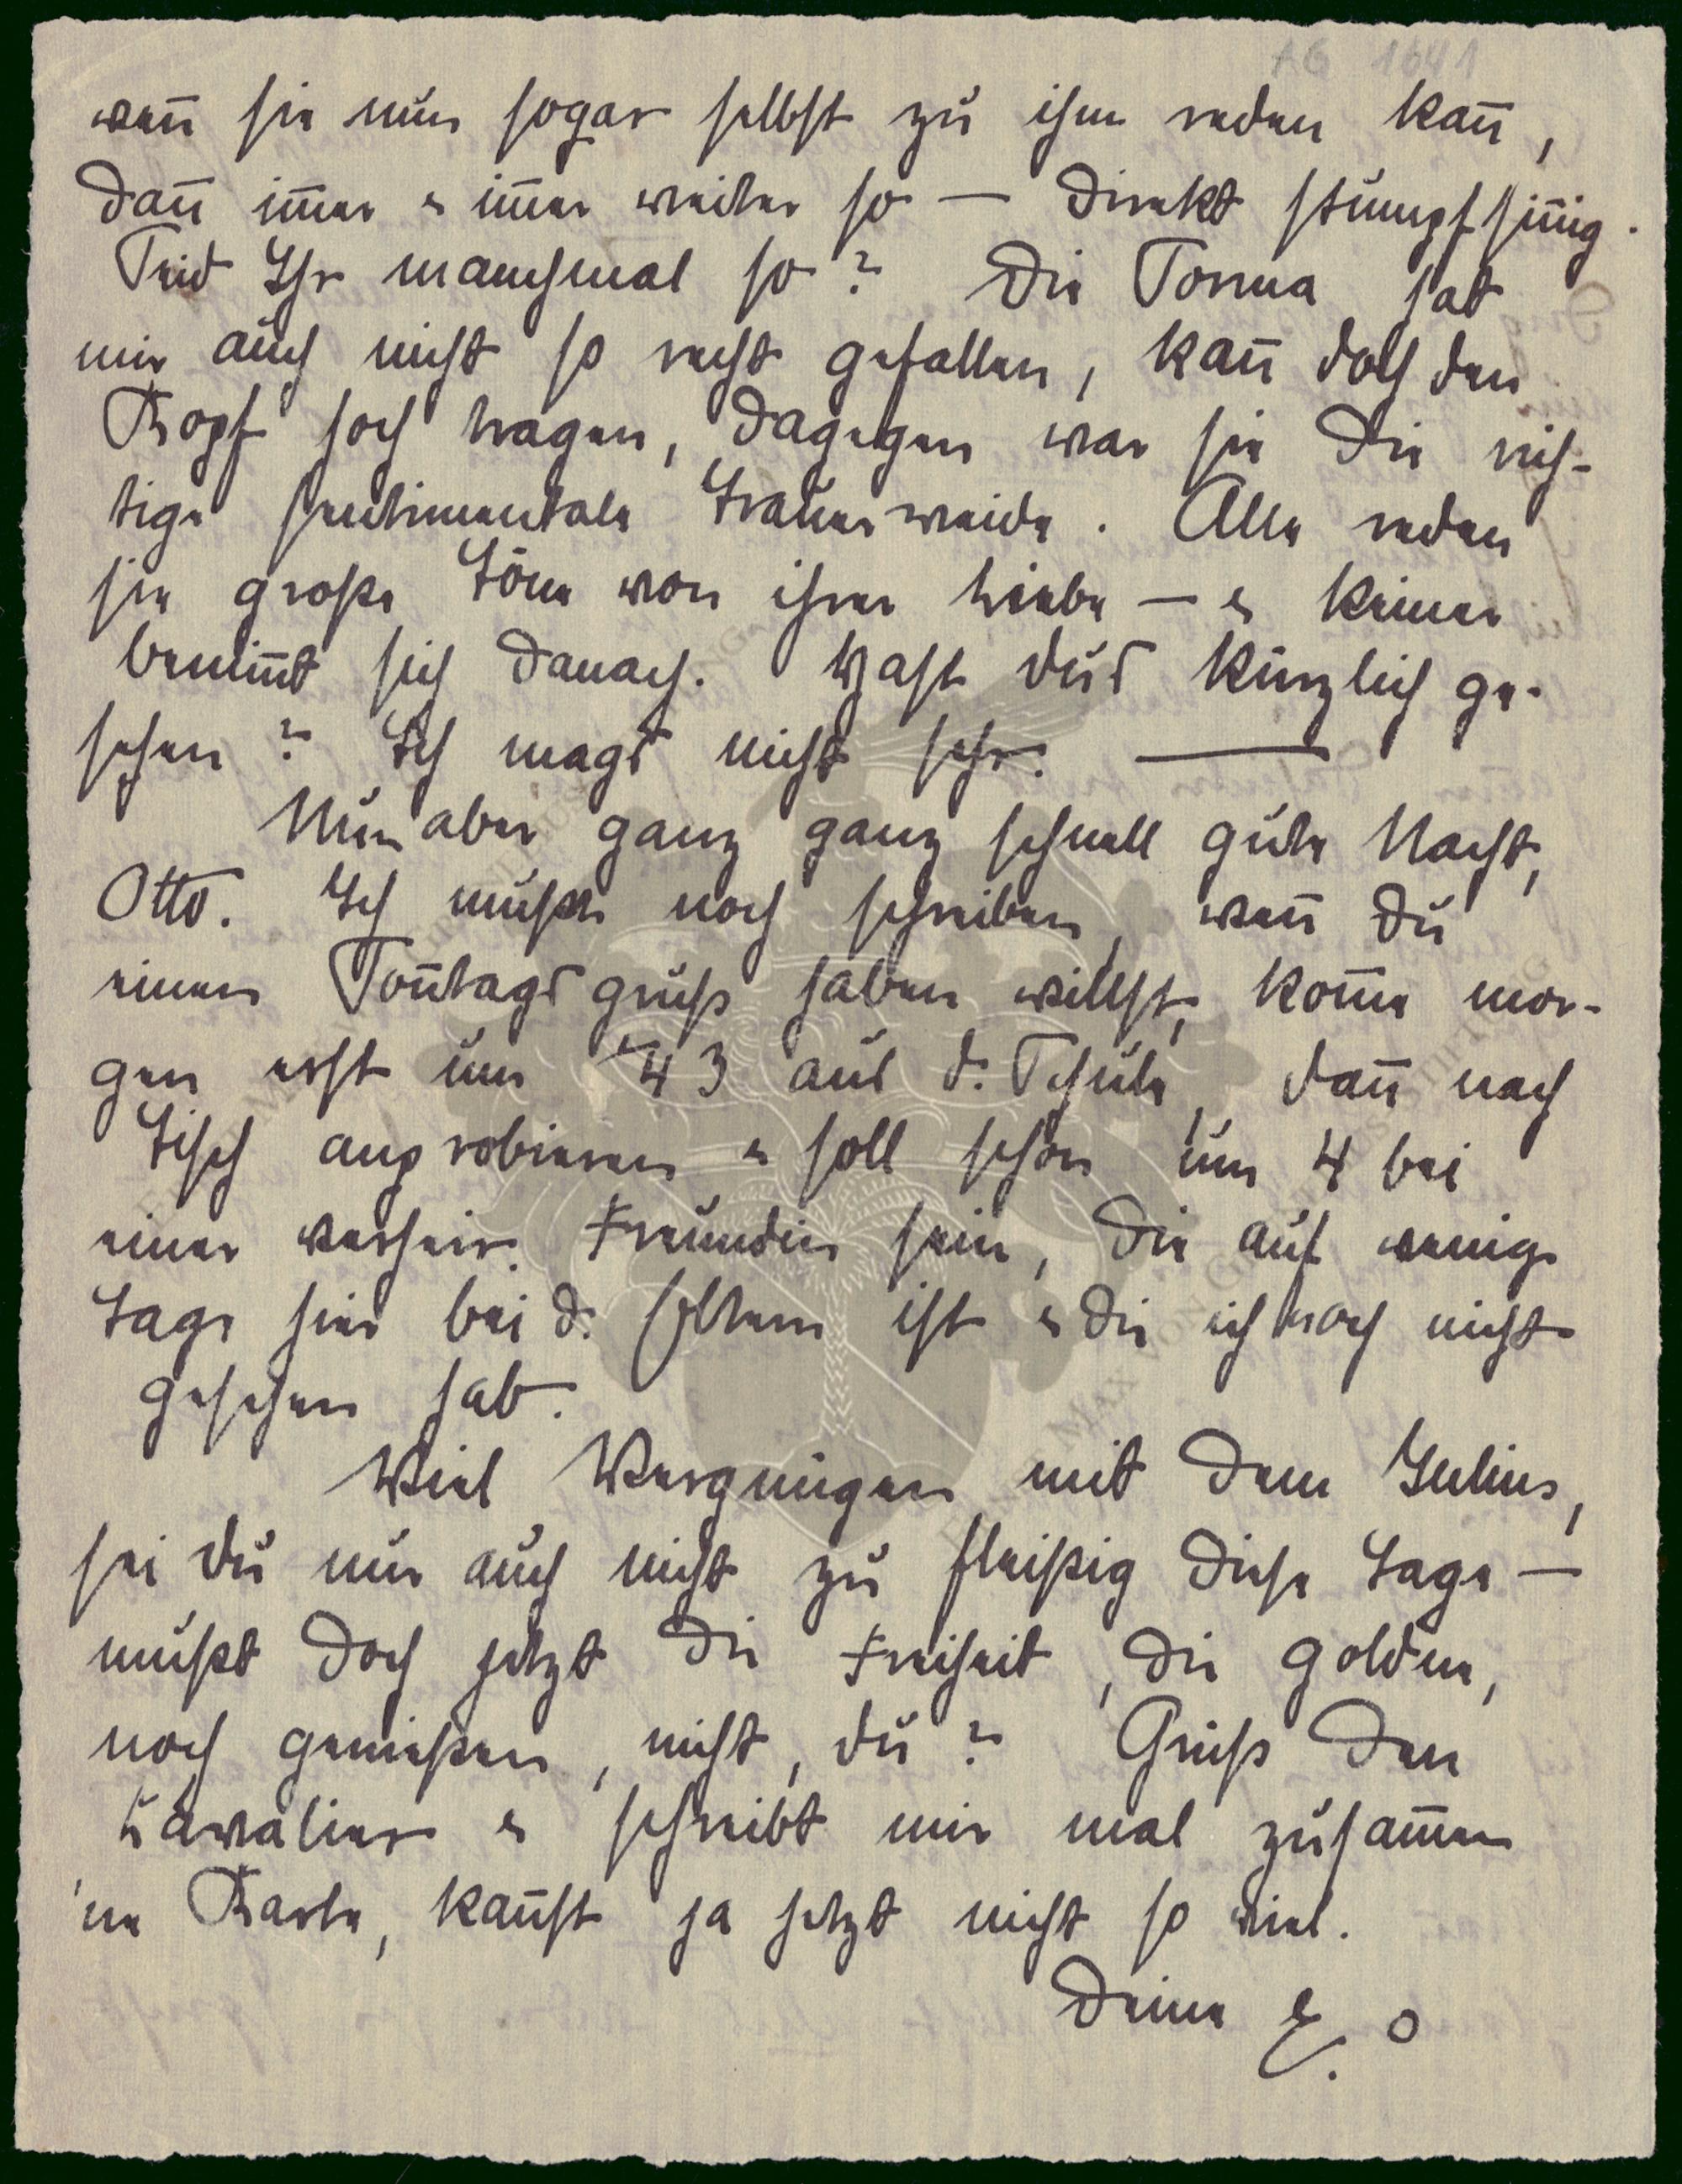 AG 1641
wen̄ sie nun sogar selbst zu ihm reden kan̄,
dan̄ im̄er & im̄er weiter so — direkt stumpfsin̄ig.
Seid Ihr manchmal so? Die Sonna hat
mir auch nicht so recht gefallen, kan̄ doch den
Kopf hoch tragen, dagegen war sie die rich-
tige sentimentale Trauerweide. Alle reden
sie große Töne von ihrer Liebe — & keiner
benim̄t sich danach. Hast Du's kürzlich ge-
sehen? Ich mags nicht sehr. —
Nun aber ganz ganz schnell gute Nacht,
Otto. Ich mußte noch schreiben, wen̄ Du
einen Son̄tagsgruß haben willst, kom̄e mor-
gen erst um ¼3 aus d. Schule, dan̄ nach
Tisch anprobieren & soll schon um 4 bei
einer verheir. Freundin sein, die auf wenige
Tage hier bei d. Eltern ist & die ich noch nicht
gesehen hab.
Viel Vergnügen mit dem Julius,
sei Du nur auch nicht zu fleißig diese Tage —
mußt doch jetzt die Freiheit, die goldene,
noch genießen, nicht, Du? Grüß den
Kavalier & schreibt mir mal zusam̄en
'ne Karte, kan̄st ja jetzt nicht so viel.
Deine E. o